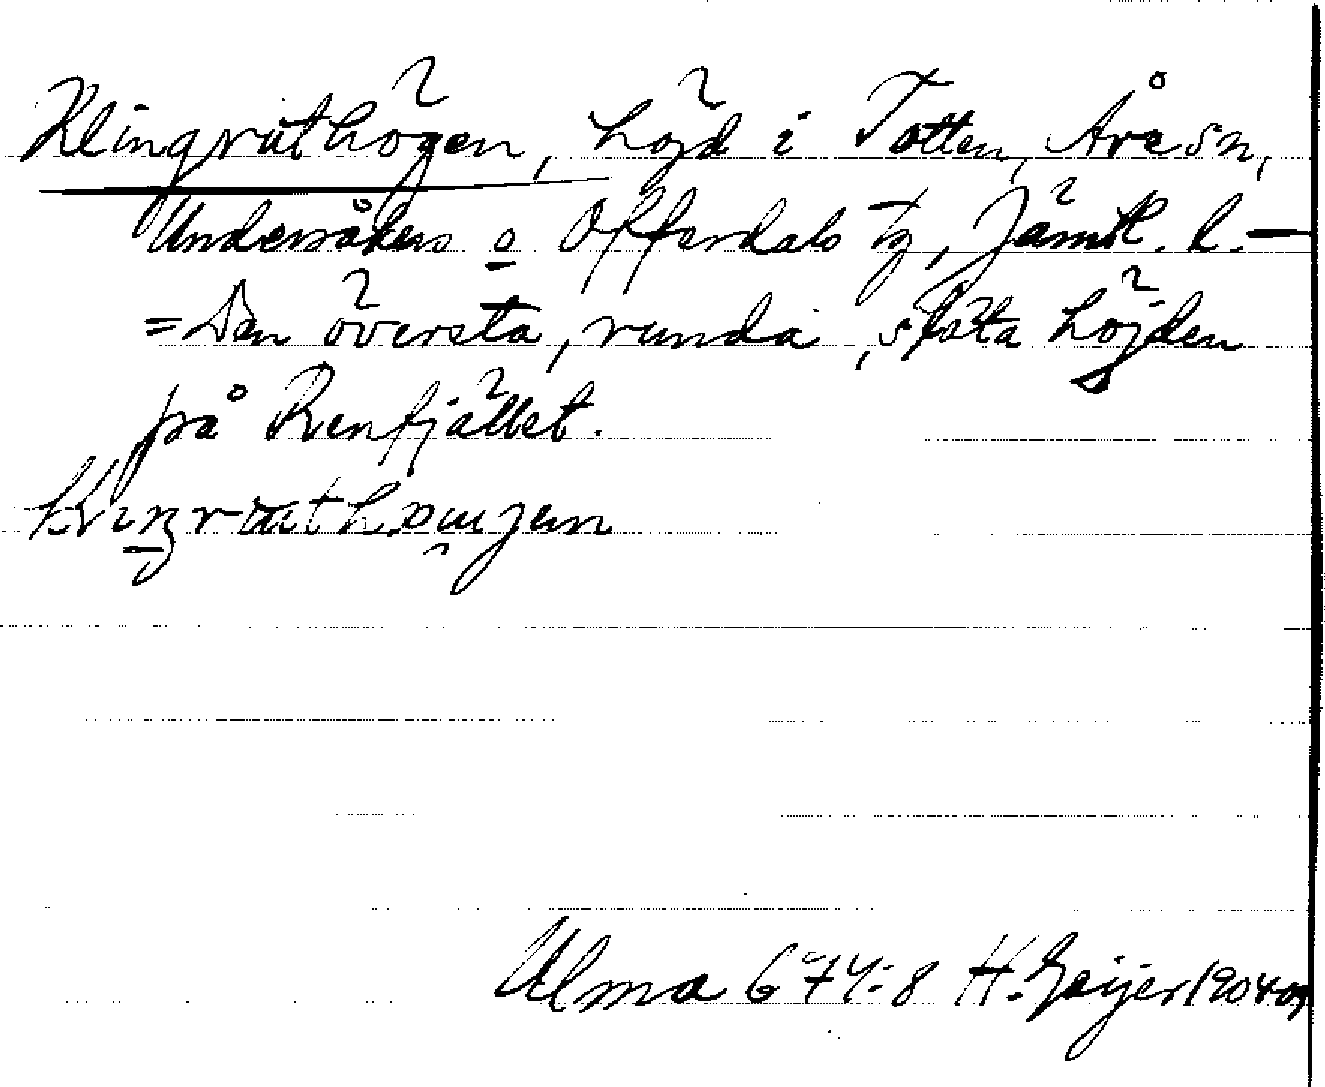 Klingruthögen, höjd i Totten, Åre sn,
Undersåkers o Offerdals tg, Jämtl. l. —
= Den översta, runda, släta höjden
på Renfjället.
Ulma 674:8 H. Geijer 1904-09